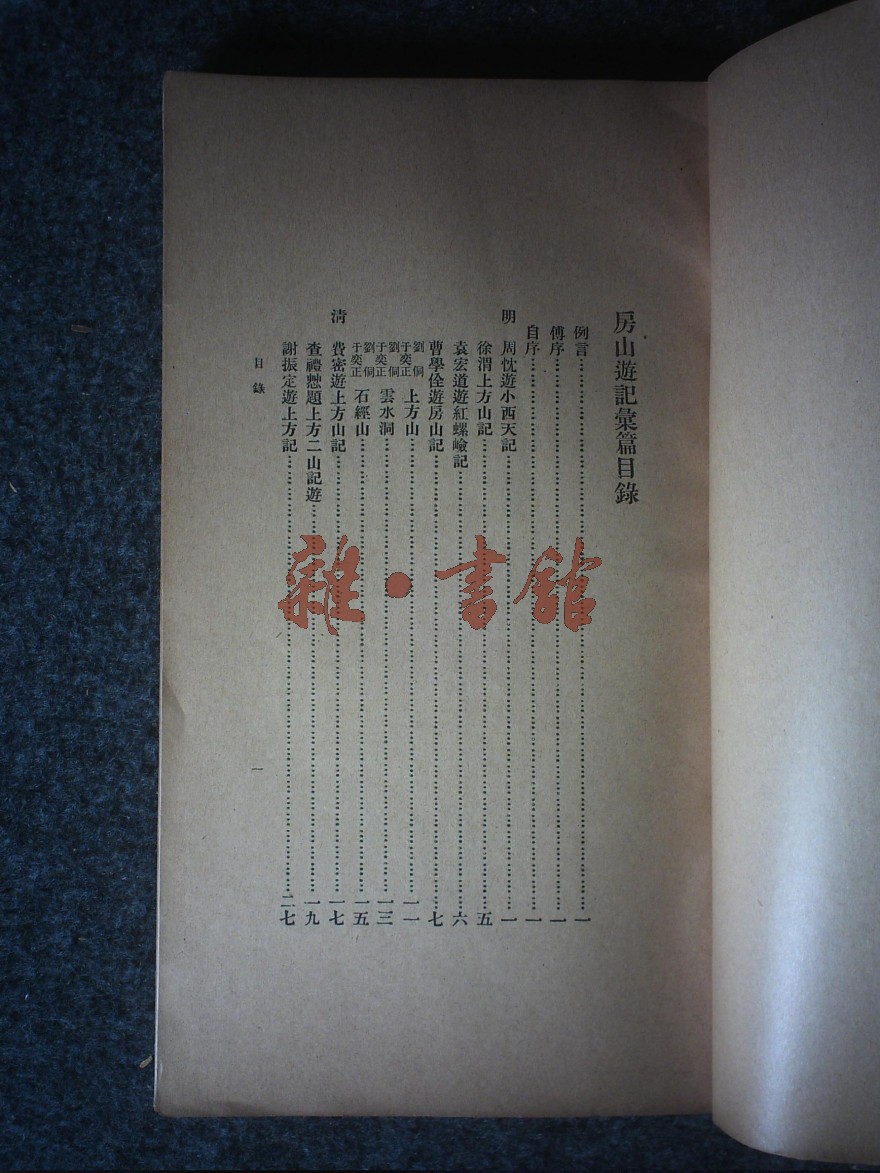 房山遊記彙篇目錄
例言……一
傅序……一
自序……一
明 周忱遊小西天記……一
徐渭上方山記……五
袁宏道遊紅螺嶮記……六
曹學佺遊房山記……七
劉侗于奕正 上方山……一一
劉侗于奕正 雲水洞……一三
劉侗于奕正 石經山……一五
清 費密遊上方山記……一七
查禮憇題上方二山記遊……一九
謝振定遊上方記……二七
目錄 一
雜·書館